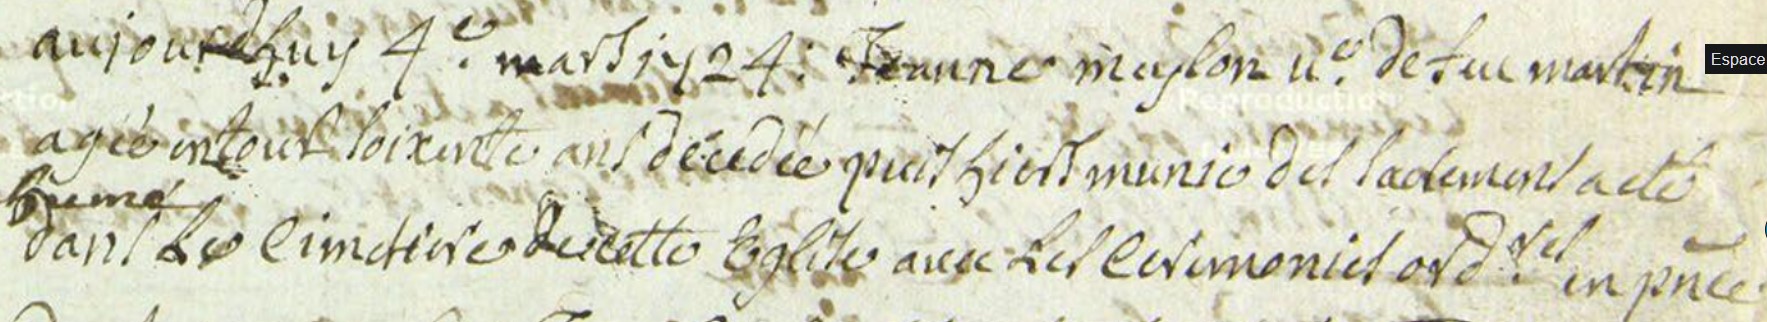 aujourdhuy 4.e mars 1724. Jeanne meylon ve. de feu martin
Espace
agée entour soixente ans décedée puis hiers munie des sacdements a eté
humé
dans Le Cimetiere de cette Eglise avec Les Ceremonies ord.res en pnce
Reproduction